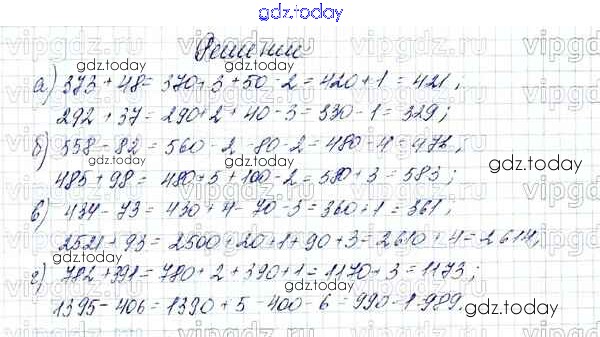 gdz.today
Решение
а) 373 + 48 = 370 + 3 + 50 - 2 = 420 + 1 = 421;
gdz.today
292 + 37 = 290 + 2 + 40 - 3 = 330 - 1 = 329;
б) 558 - 82 = 560 - 2 - 80 - 2 = 480 - 4 = 472,
gdz.today
gdz.today
485 + 98 = 480 + 5 + 100 - 2 = 580 + 3 = 583;
в) 434 - 73 = 430 + 4 - 70 - 3 = 360 + 1 = 361,
gdz.today
2521 + 93 = 2500 + 20 + 1 + 90 + 3 = 2610 + 4 = 2614,
г) 782 + 391 = 780 + 2 + 390 + 1 = 1170 + 3 = 1173;
gdz.today
1395 - 406 = 1390 + 5 - 400 - 6 = 990 - 1 = 989.
gdz.today